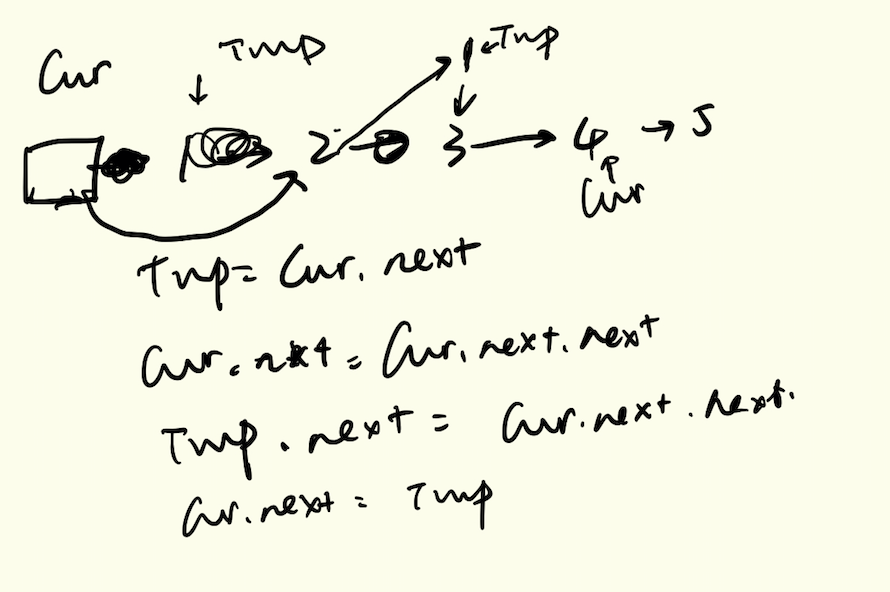 Cur
Tmp
1 ← Tmp
1 2 3 → 4 → 5
Cur
Tmp = Cur. next
Cur. next = Cur. next. next
Tmp. next = Cur. next. next.
Cur. next = Tmp